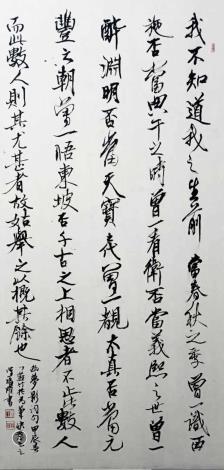 我不知道我之生前當春秋之季曾識西
施否當典午之時曾一看衛否當義熙之世曾一
醉淵明否當天寶之代曾一覩太真否當元
豐之朝曾一晤東坡否千古之上相思者不止此數人
而此數人則其尤甚者故姑舉之以概其餘也
幽夢影詞句甲辰
書